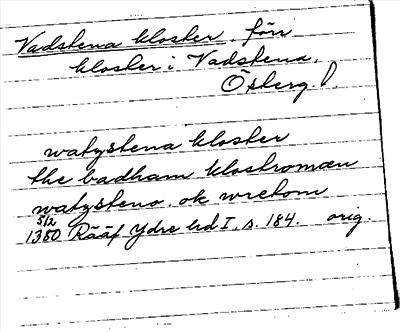 Vadstena kloster, förr
kloster i Vadstena,
Österg. l.
watzstena kloster
the badham klostromæn
watzsteno, ok wretom
5/2
1380 Rääf Ydre hd I, s. 184. orig.